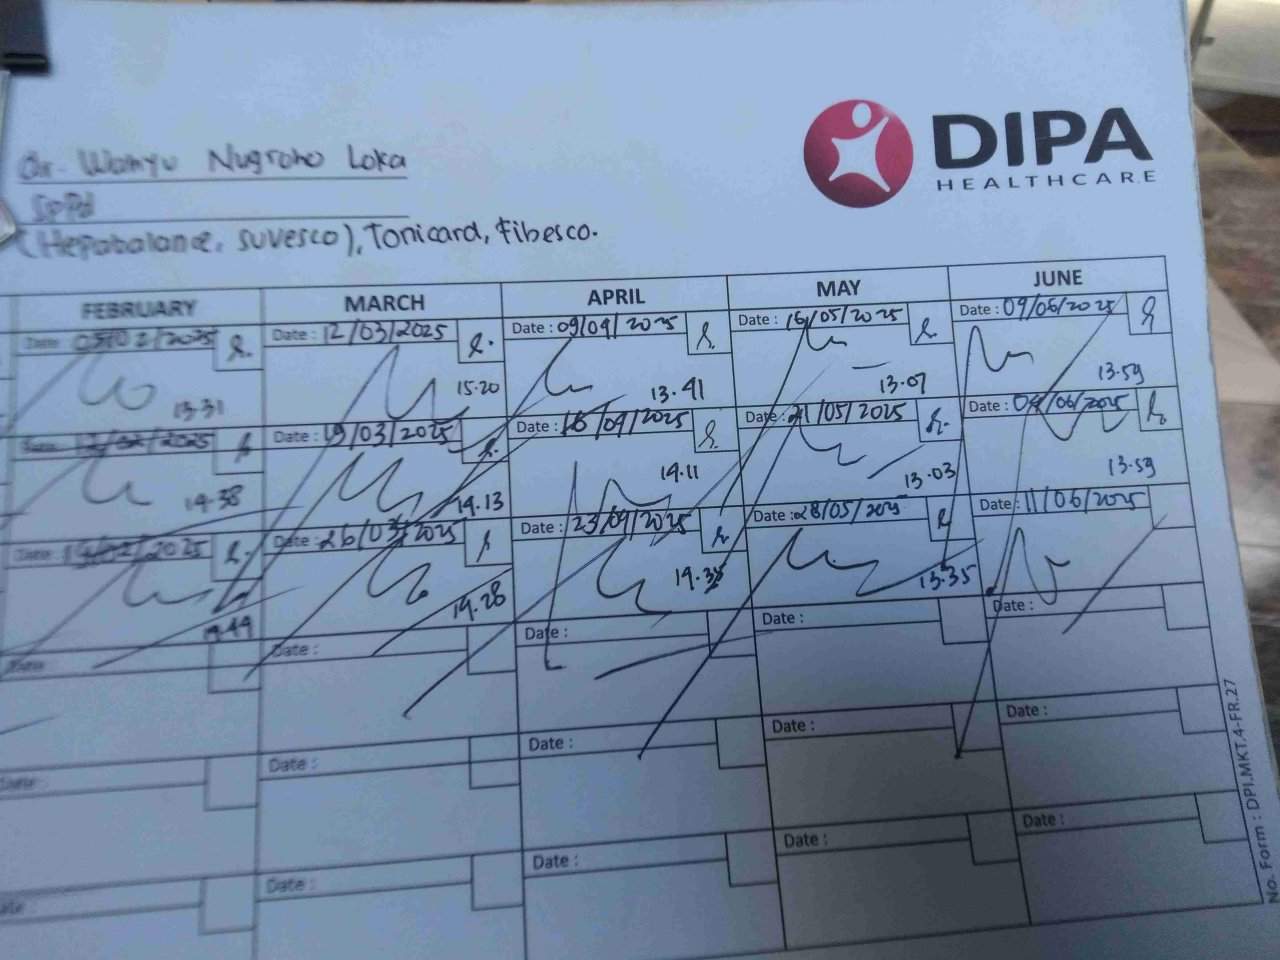 DIPA
HEALTHCARE
dr. Wahyu Nugroho Loka
SpPd
(Hepabalance, suvesco), Tonicard, Fibesco.
FEBRUARY MARCH APRIL MAY JUNE
Date : 05/02/2025 Date : 12/03/2025 Date : 09/04/2025 Date : 15/05/2025 Date : 09/06/2025
13.31 15.20 13.41 13.07 13.59
Date : 12/02/2025 Date : 19/03/2025 Date : 16/04/2025 Date : 21/05/2025 Date : 04/06/2025
14.38 14.13 14.11 13.03 13.59
Date : 19/02/2025 Date : 26/03/2025 Date : 23/04/2025 Date : 28/05/2025 11/06/2025
14.44 14.28 14.35 13.35
Date : Date : Date : Date : Date :
Date : Date : Date : Date : Date :
Date : Date : Date : Date : Date :
No. Form : DPI.MKT.4-FR.27